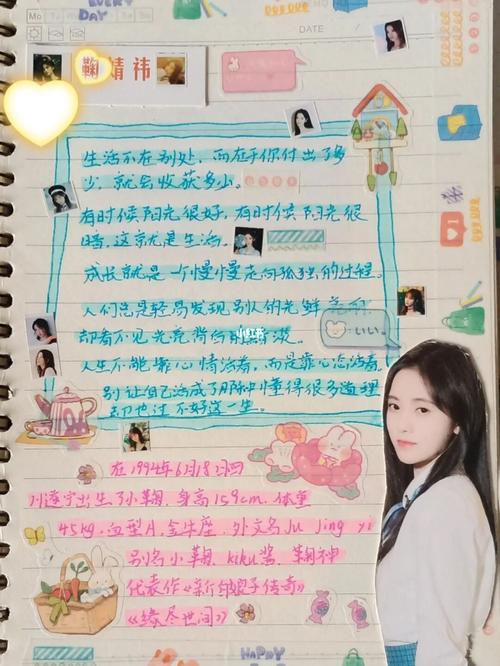 EVERY DAY
DUO DUO
Mo
DATE
鞠婧祎
生活不在别处，而在于你付出了多
少，就会收获多小。
有时候阳光很好，有时候阳光很
暗，这就是生活。
成长就是一个慢慢走向孤独的过程。
人们总是轻易发现别人的光鲜亮丽，
却看不见光亮背后的
小红书
いい。
人生不能靠心情活着，而是靠心态活着。
别让自己活成了那种懂得很多道理
却也过不好这一生。
在1994年6月18日四
川遂宁出生了小鞠，身高159cm，体重
45kg，血型A，金牛座，外文名Ju Jing yi
别名小鞠、kiku酱、鞠神
代表作《新白娘子传奇》
《缘尽世间》
HAPPY
DAY